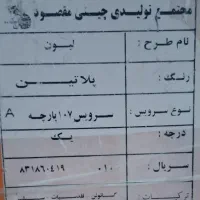 مجتمع تولیدی چینی مقصود
نام طرح : لیون
رنگ : پلاتین
نوع سرویس : سرویس ۱۰۷ پارچه A
درجه : یک
سریال : ۰۱۰ ۸۳۱۸۶۰۴۱۹